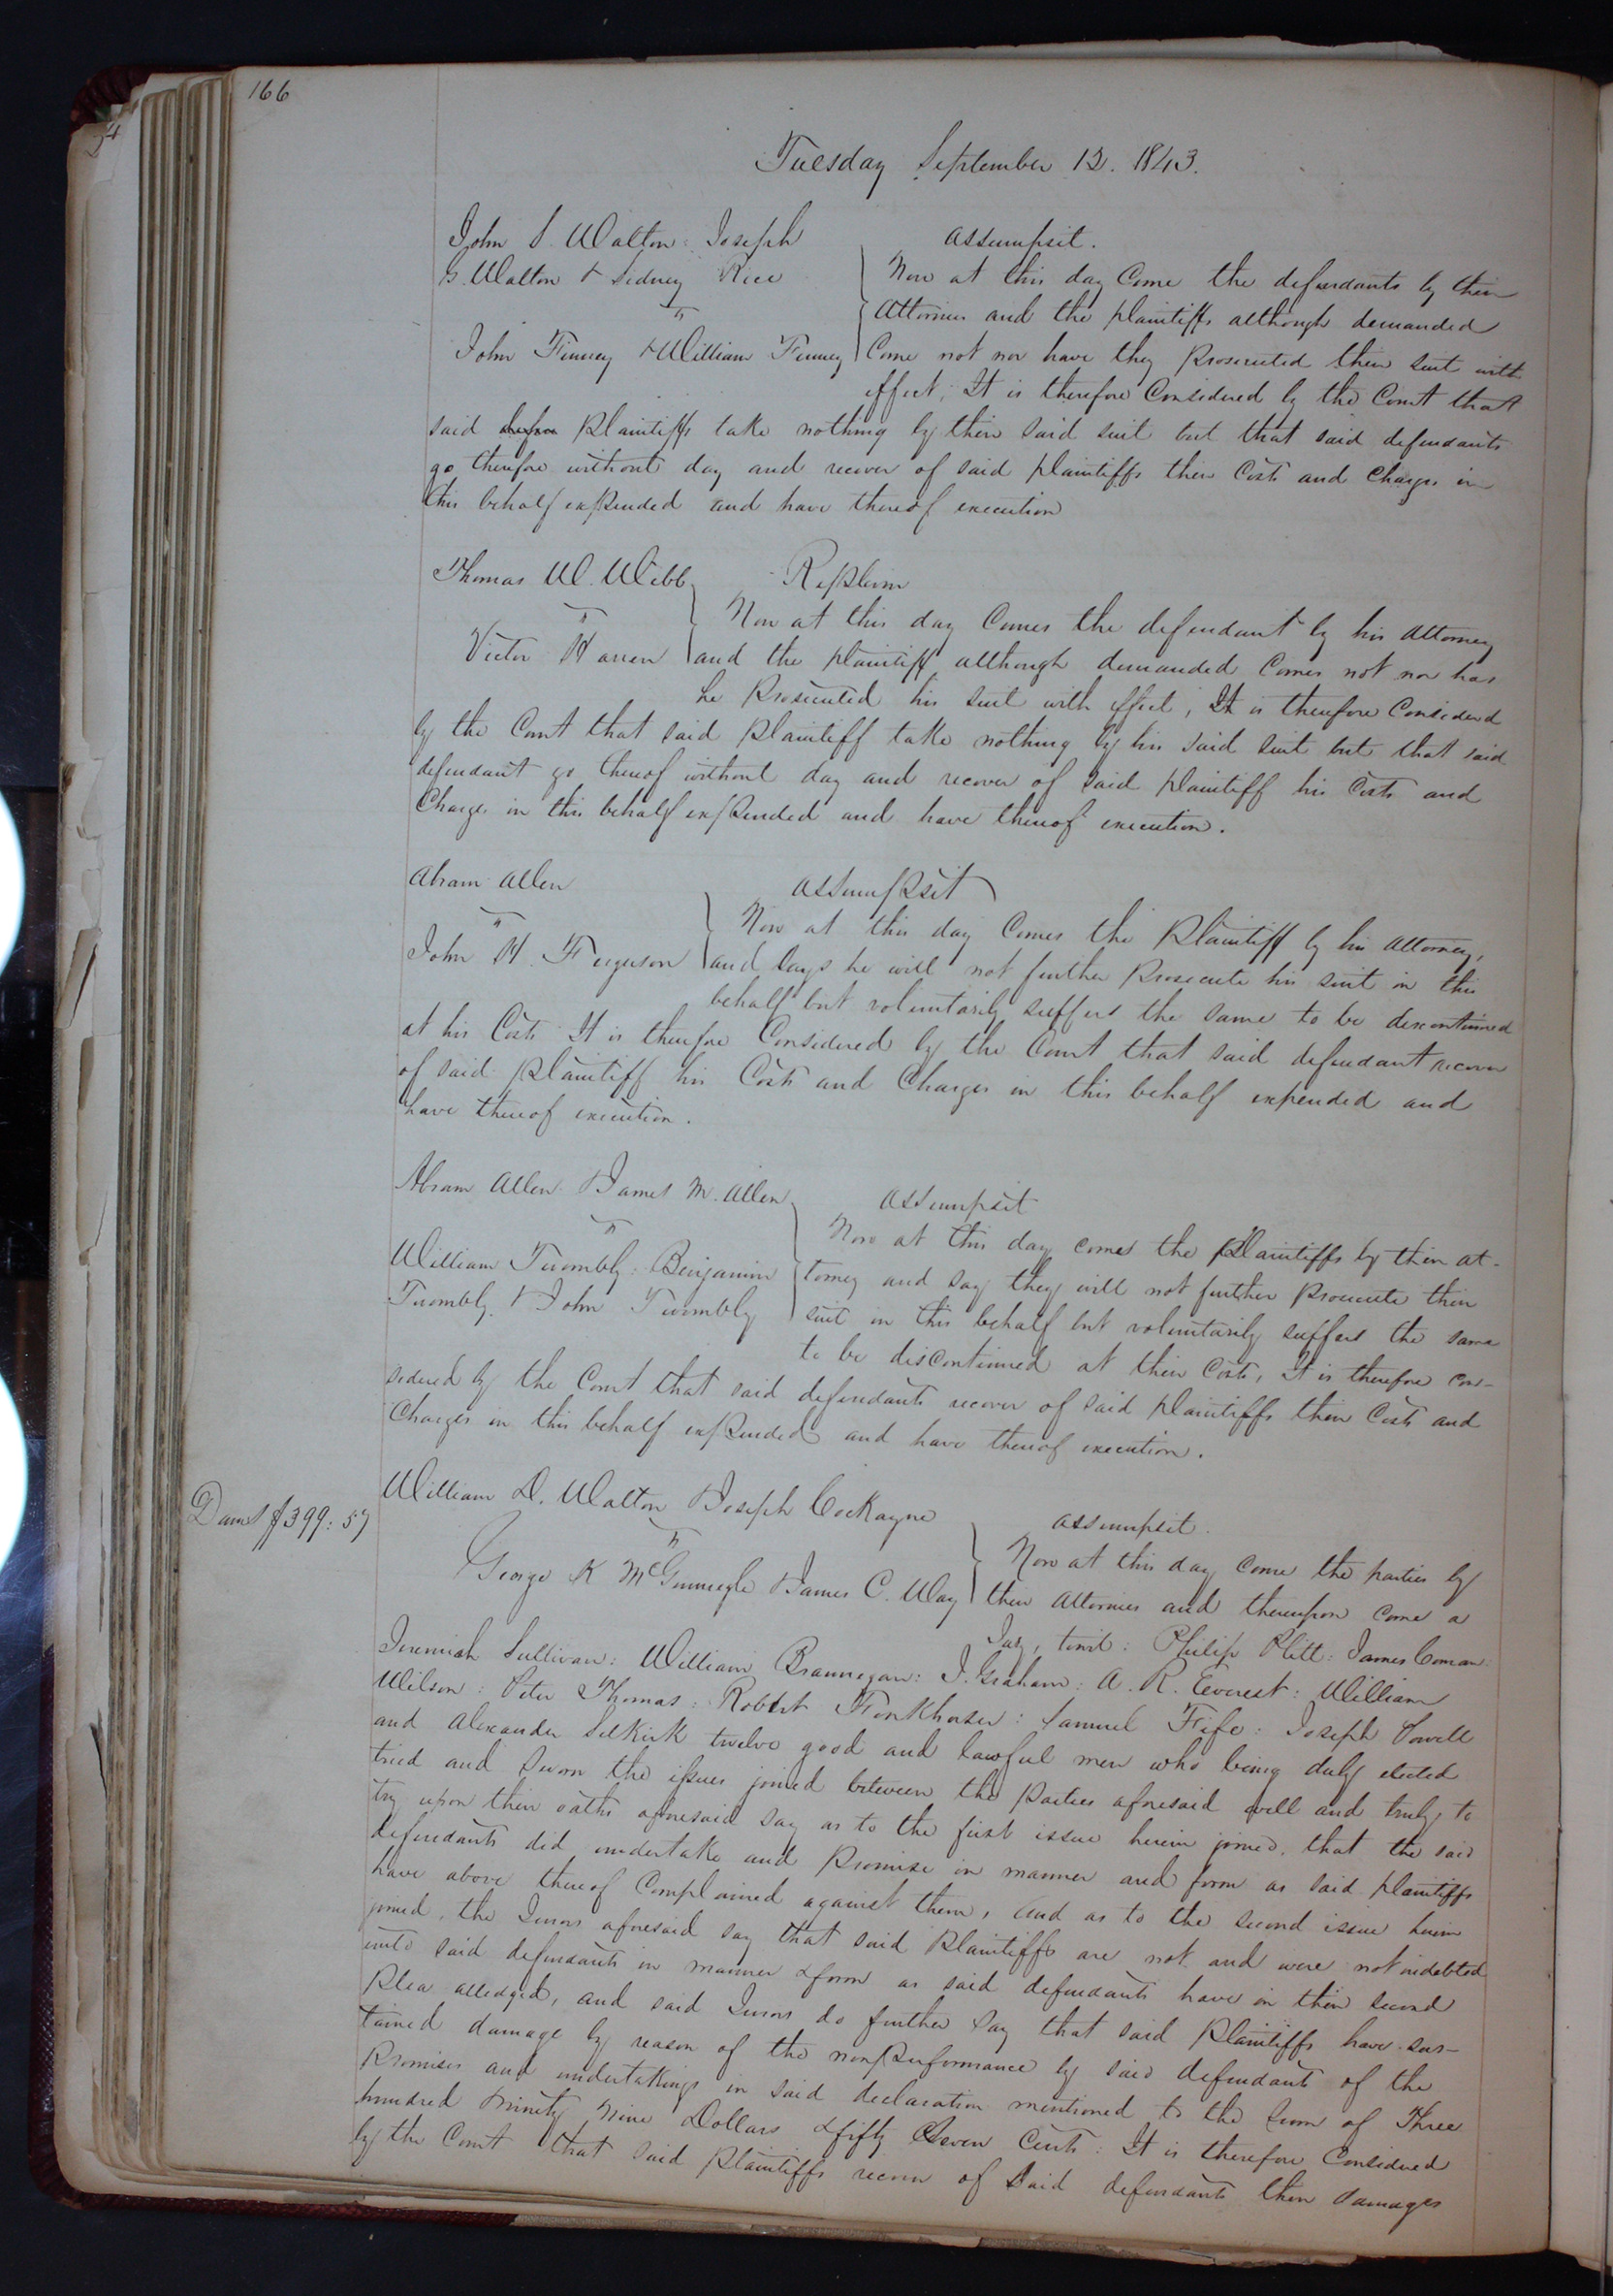 166
Tuesday September 12. 1843.
John S. Walton: Joseph
G. Walton & Sidney Rice
vs
John Finney & William Finney
Assumpsit.
Now at this day Come the defendants by their
Attornies and the plaintiffs although demanded
Come not nor have they Prosecuted their suit with
effect; It is therefore Considered by the Court that
said Plaintiffs take nothing by their said suit but that said defendants
go therefore without day and recover of said plaintiffs their Costs and Charges in
this behalf expended and have thereof execution
Thomas W. Webb
vs
Victor Haren
Replevin
Now at this day Comes the defendant by his Attorney
and the plaintiff although demanded Comes not nor has
he Prosecuted his suit with effect; It is therefore Considered
by the Court that said Plaintiff take nothing by his said suit but that said
defendant go thereof without day and recover of said plaintiff his Costs and
Charges in this behalf expended and have thereof execution.
Abram Allen
vs
John H. Ferguson
Assumpsit
Now at this day Comes the Plaintiff by his Attorney,
and Says he will not further Prosecute his suit in this
behalf but voluntarily suffers the same to be discontinued
at his Costs It is therefore Considered by the Court that said defendant recover
of said Plaintiff his Costs and Charges in this behalf expended and
have thereof execution.
Abram Allen & James M. Allen
vs
William Twombly: Benjamin
Twombly & John Twombly
Assumpsit
Now at this day comes the Plaintiffs by their at-
torney and say they will not further Prosecute their
suit in this behalf but voluntarily suffers the same
to be discontinued at their Costs, It is therefore con-
sidered by the Court that said defendants recover of said plaintiffs their Costs and
Charges in this behalf expended and have thereof execution.
Dams $399:57
William D. Walton & Joseph Cockayne
vs
George K McGunnegle & James C. Way
Assumpsit.
Now at this day Come the parties by
their Attornies and thereupon come a
Jury, towit: Philip Plitt: James Coman:
Jeremiah Sullivan: William Brannegan: J. Graham: A. R. Everest: William
Wilson: Peter Thomas: Robert Fonkhoser: Samuel Fife: Joseph Powell
and Alexander Selkirk twelve good and lawful men who being duly elected
tried and Sworn the issues joined between the Parties aforesaid well and truly to
try upon their oaths aforesaid say as to the first issue herein joined, that the said
defendants did undertake and Promise in manner and form as said plaintiffs
have above thereof Complained against them, And as to the second issue herein
joined, the Jurors aforesaid say that said Plaintiffs are not and were not indebted
unto said defendants in manner & form as said defendants have in their second
Plea alledged, and said Jurors do further Say that said Plaintiffs have sus-
tained damage by reason of the nonPerformance by said defendants of the
Promises and undertakings in said declaration mentioned to the Sum of Three
hundred & ninety Nine Dollars & fifty Seven Cents: It is therefore Considered
by the Court that said Plaintiffs recover of Said defendants their damages